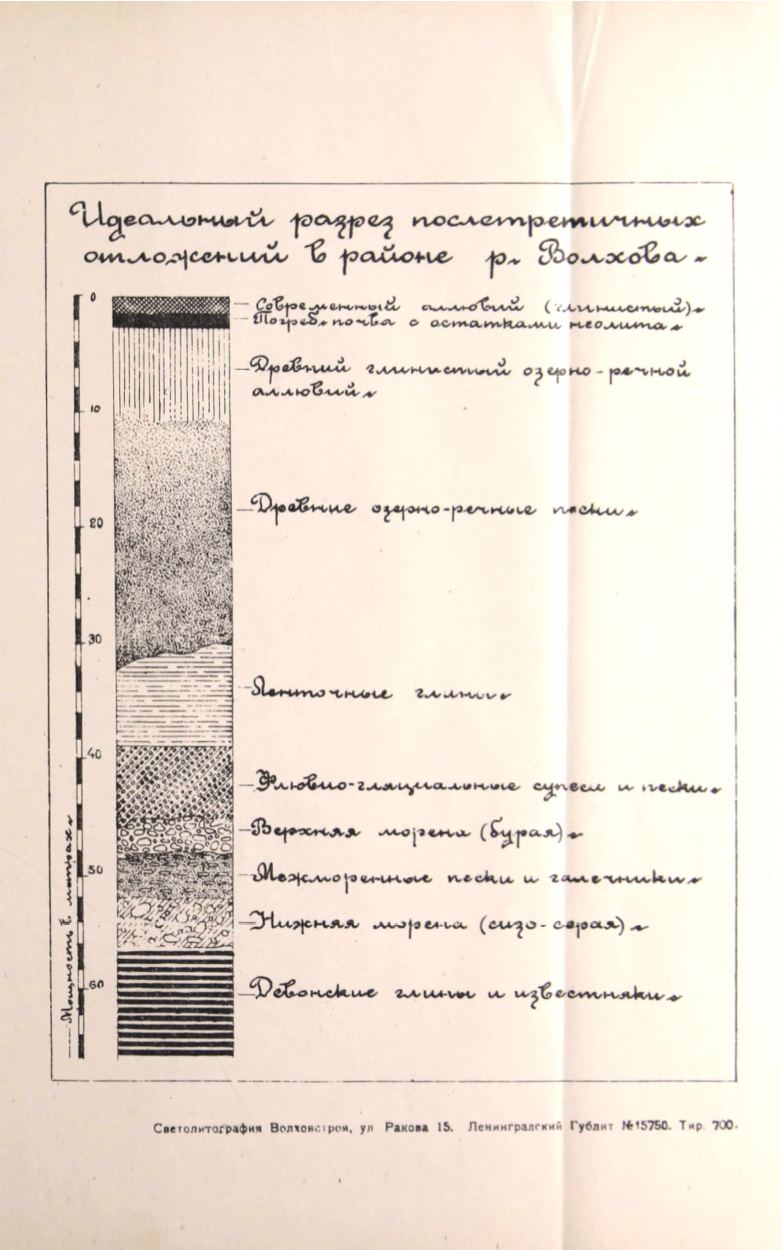 Идеальный разрез послетретичных
отложений в районе р. Волхова.
0
Современный аллювий (глинистый).
Погреб. почва с остатками неолита.
Древний глинистый озерно-речной
аллювий.
10
Древние озерно-речные пески.
20
30
Ленточные глины.
40
Флювио-гляциальные супеси и пески.
Верхняя морена (бурая).
50
Межморенные пески и галечники.
Нижняя морена (сизо-серая).
60
Девонские глины и известняки.
Мощность в метрах.
Светолитография Волховстроя, ул Ракова 15. Ленинградский Гублит №15750. Тир. 700.